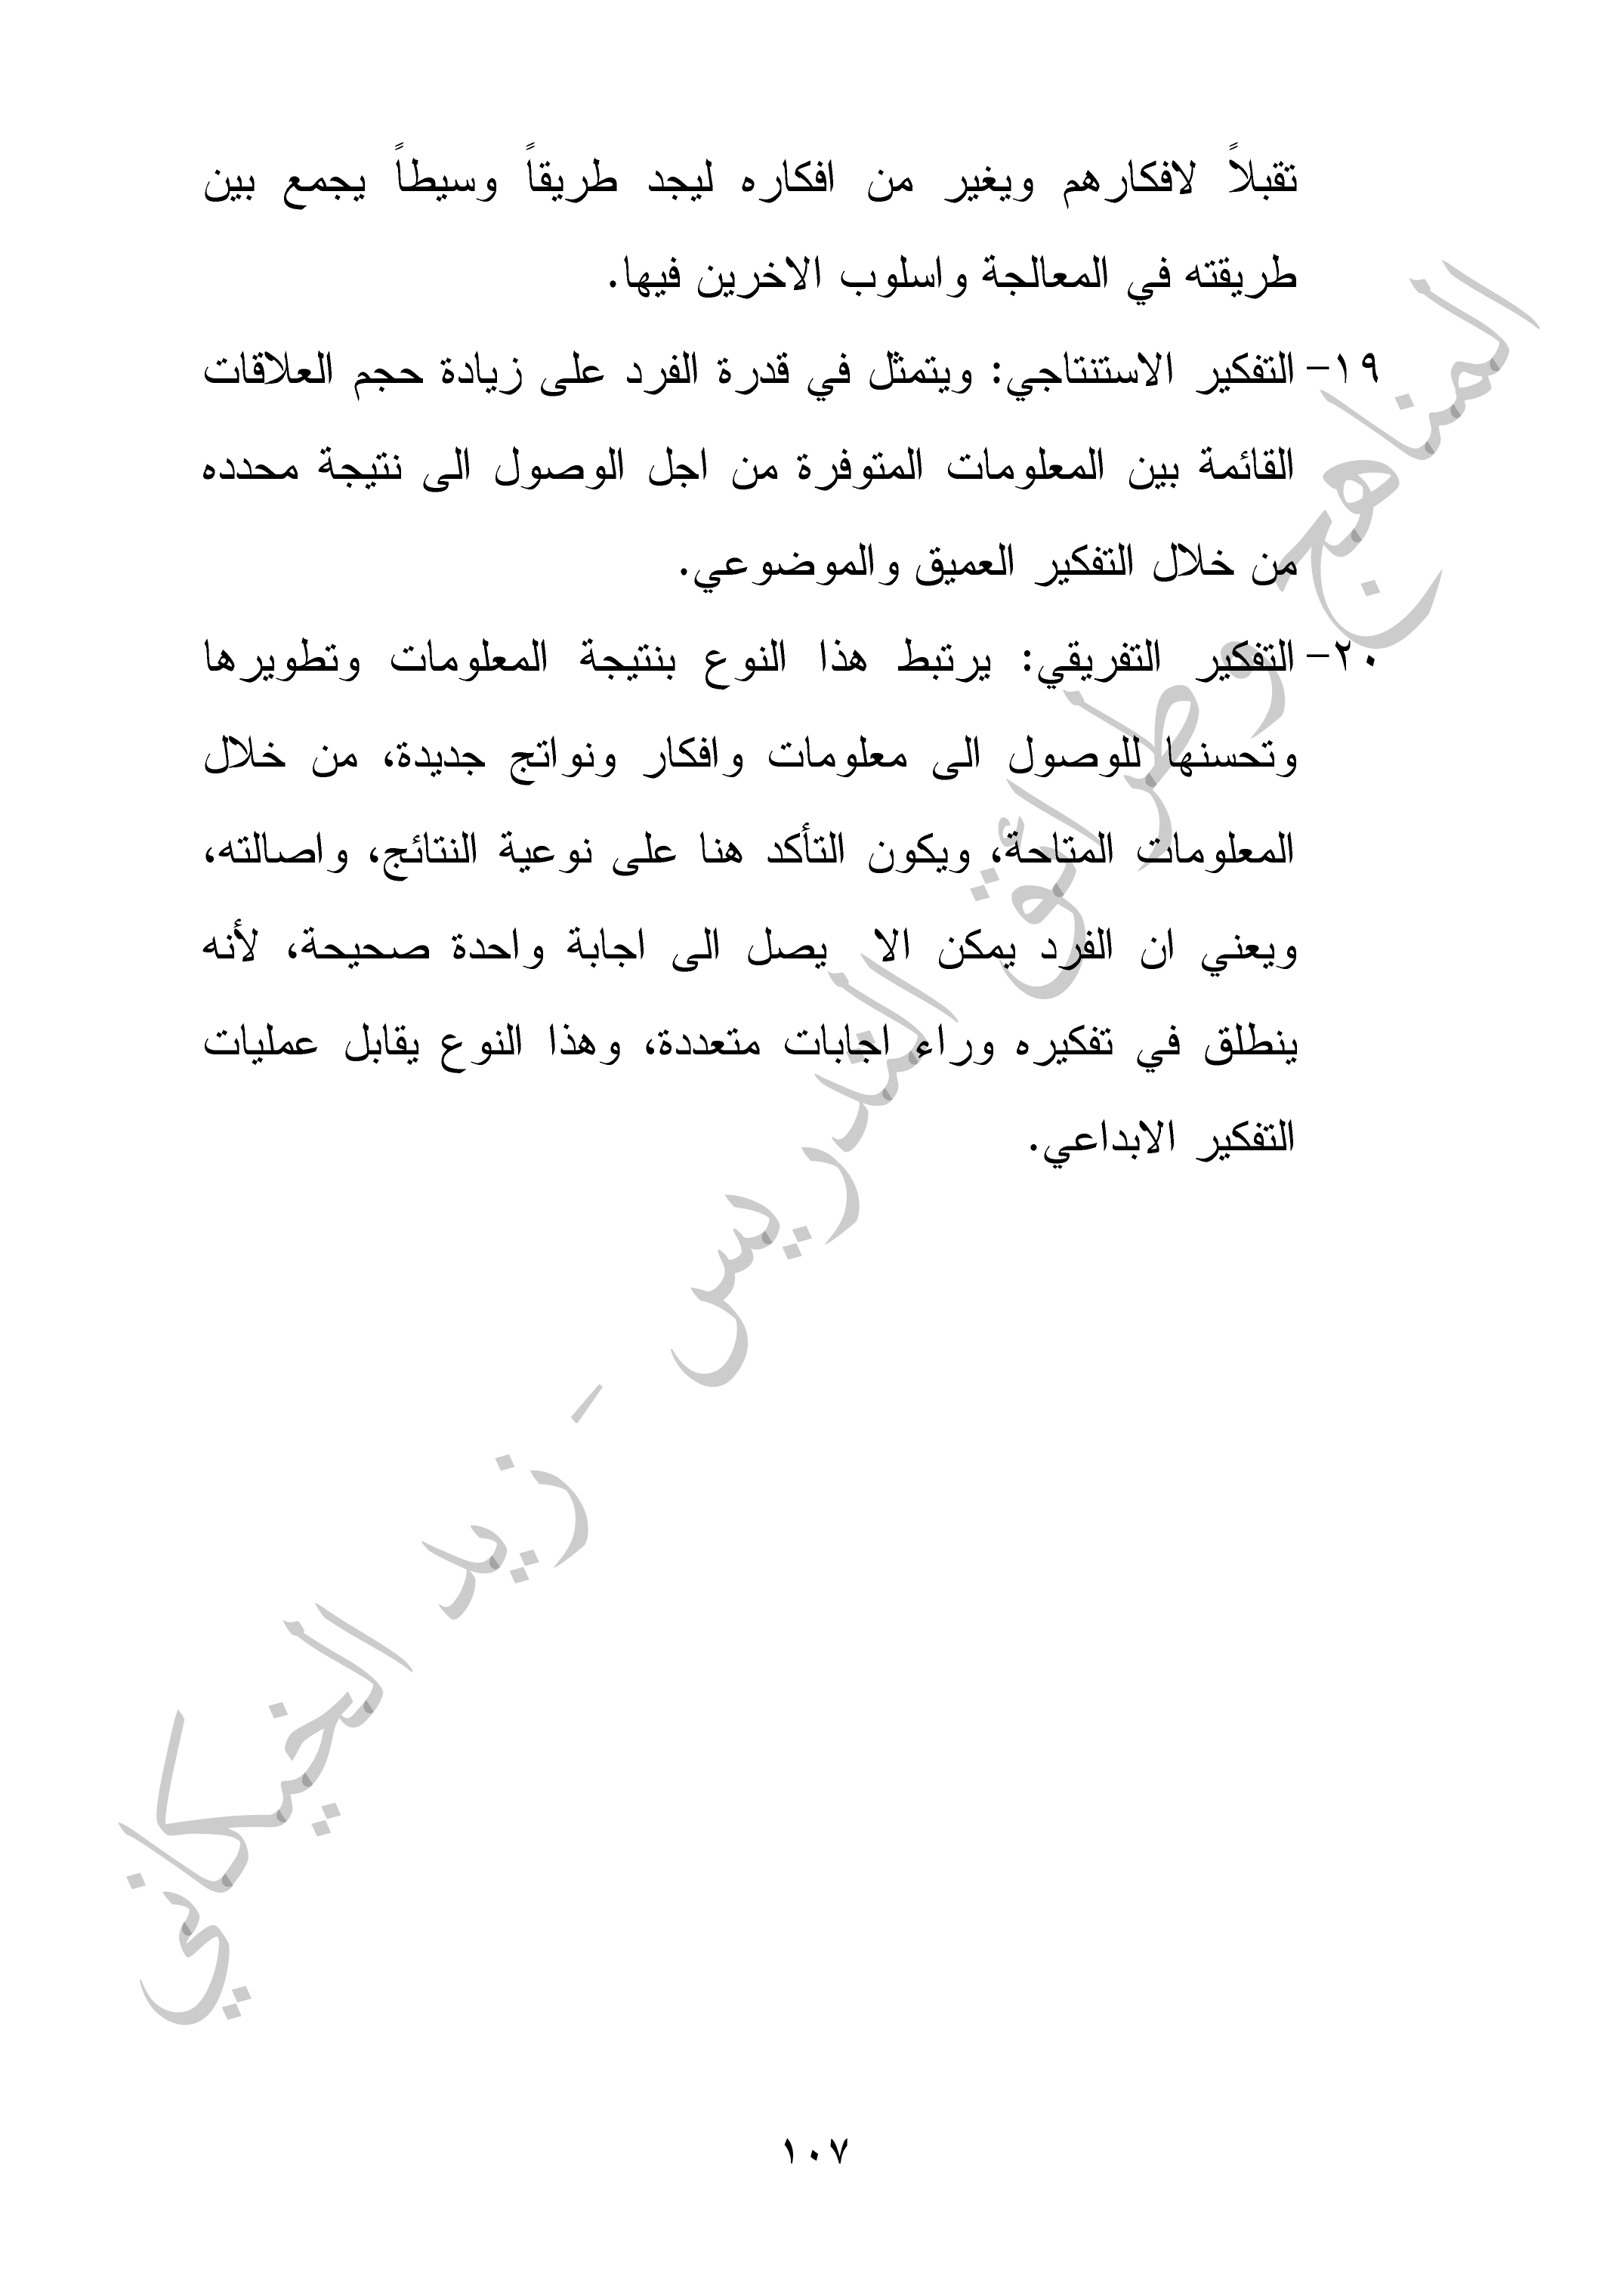 تقبلاً لافكارهم ويغير من افكاره ليجد طريقاً وسيطاً يجمع بين
طريقته في المعالجة واسلوب الاخرين فيها.
١٩- التفكير الاستنتاجي: ويتمثل في قدرة الفرد على زيادة حجم العلاقات
القائمة بين المعلومات المتوفرة من اجل الوصول الى نتيجة محدده
من خلال التفكير العميق والموضوعي.
٢٠- التفكير التفريقي: يرتبط هذا النوع بنتيجة المعلومات وتطويرها
وتحسنها للوصول الى معلومات وافكار ونواتج جديدة، من خلال
المعلومات المتاحة، ويكون التأكد هنا على نوعية النتائج، واصالته،
ويعني ان الفرد يمكن الا يصل الى اجابة واحدة صحيحة، لأنه
ينطلق في تفكيره وراء اجابات متعددة، وهذا النوع يقابل عمليات
التفكير الابداعي.
المناهج وطرائق التدريس - زيد الخيكاني
١٠٧